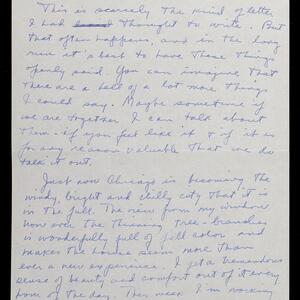 This is scarcely the kind of letter
I had thought to write. But
that often happens, and in the long
run it's best to have these things
openly said. You can imagine that
there are a hell of a lot more things
I could say. Maybe sometime if
we are together I can talk about
them - if you feel like it & if it is
for any reason valuable that we do
talk it out.
Just now Chicago is becoming the
windy, bright and chilly city that it is
in the fall. The view from my window
now over the thinning tree-branches
is wonderfully full of fall color and
makes the house seem more than
ever a new experience. I get a tremendous
sense of beauty and comfort out of it every
hour of the day. This week I'm working